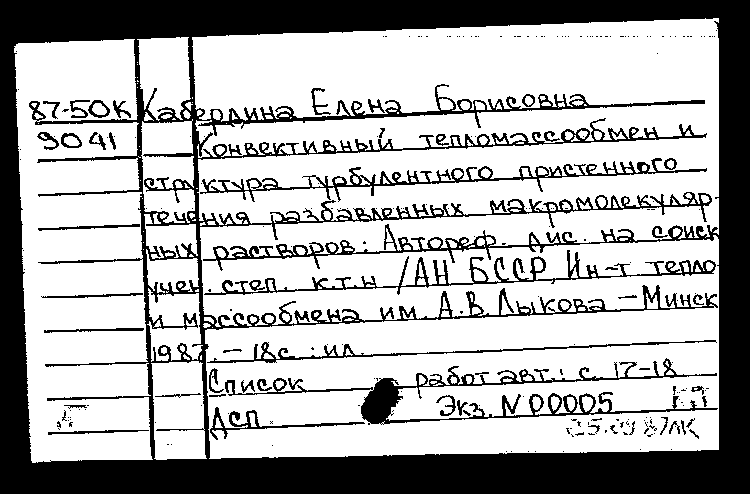 87-50К Кабердина Елена Борисовна
9041 Конвективный тепломассообмен и
структура турбулентного пристенного
течения разбавленных макромолекуляр-
ных растворов: Автореф. дис. на соиск
учен. степ. к.т.н /АН БССР, Ин-т тепло
и массообмена им. А.В. Лыкова. – Минск
1987. – 18с. : ил.
Список работ авт.: с. 17-18
ДСП Экз. N 00005